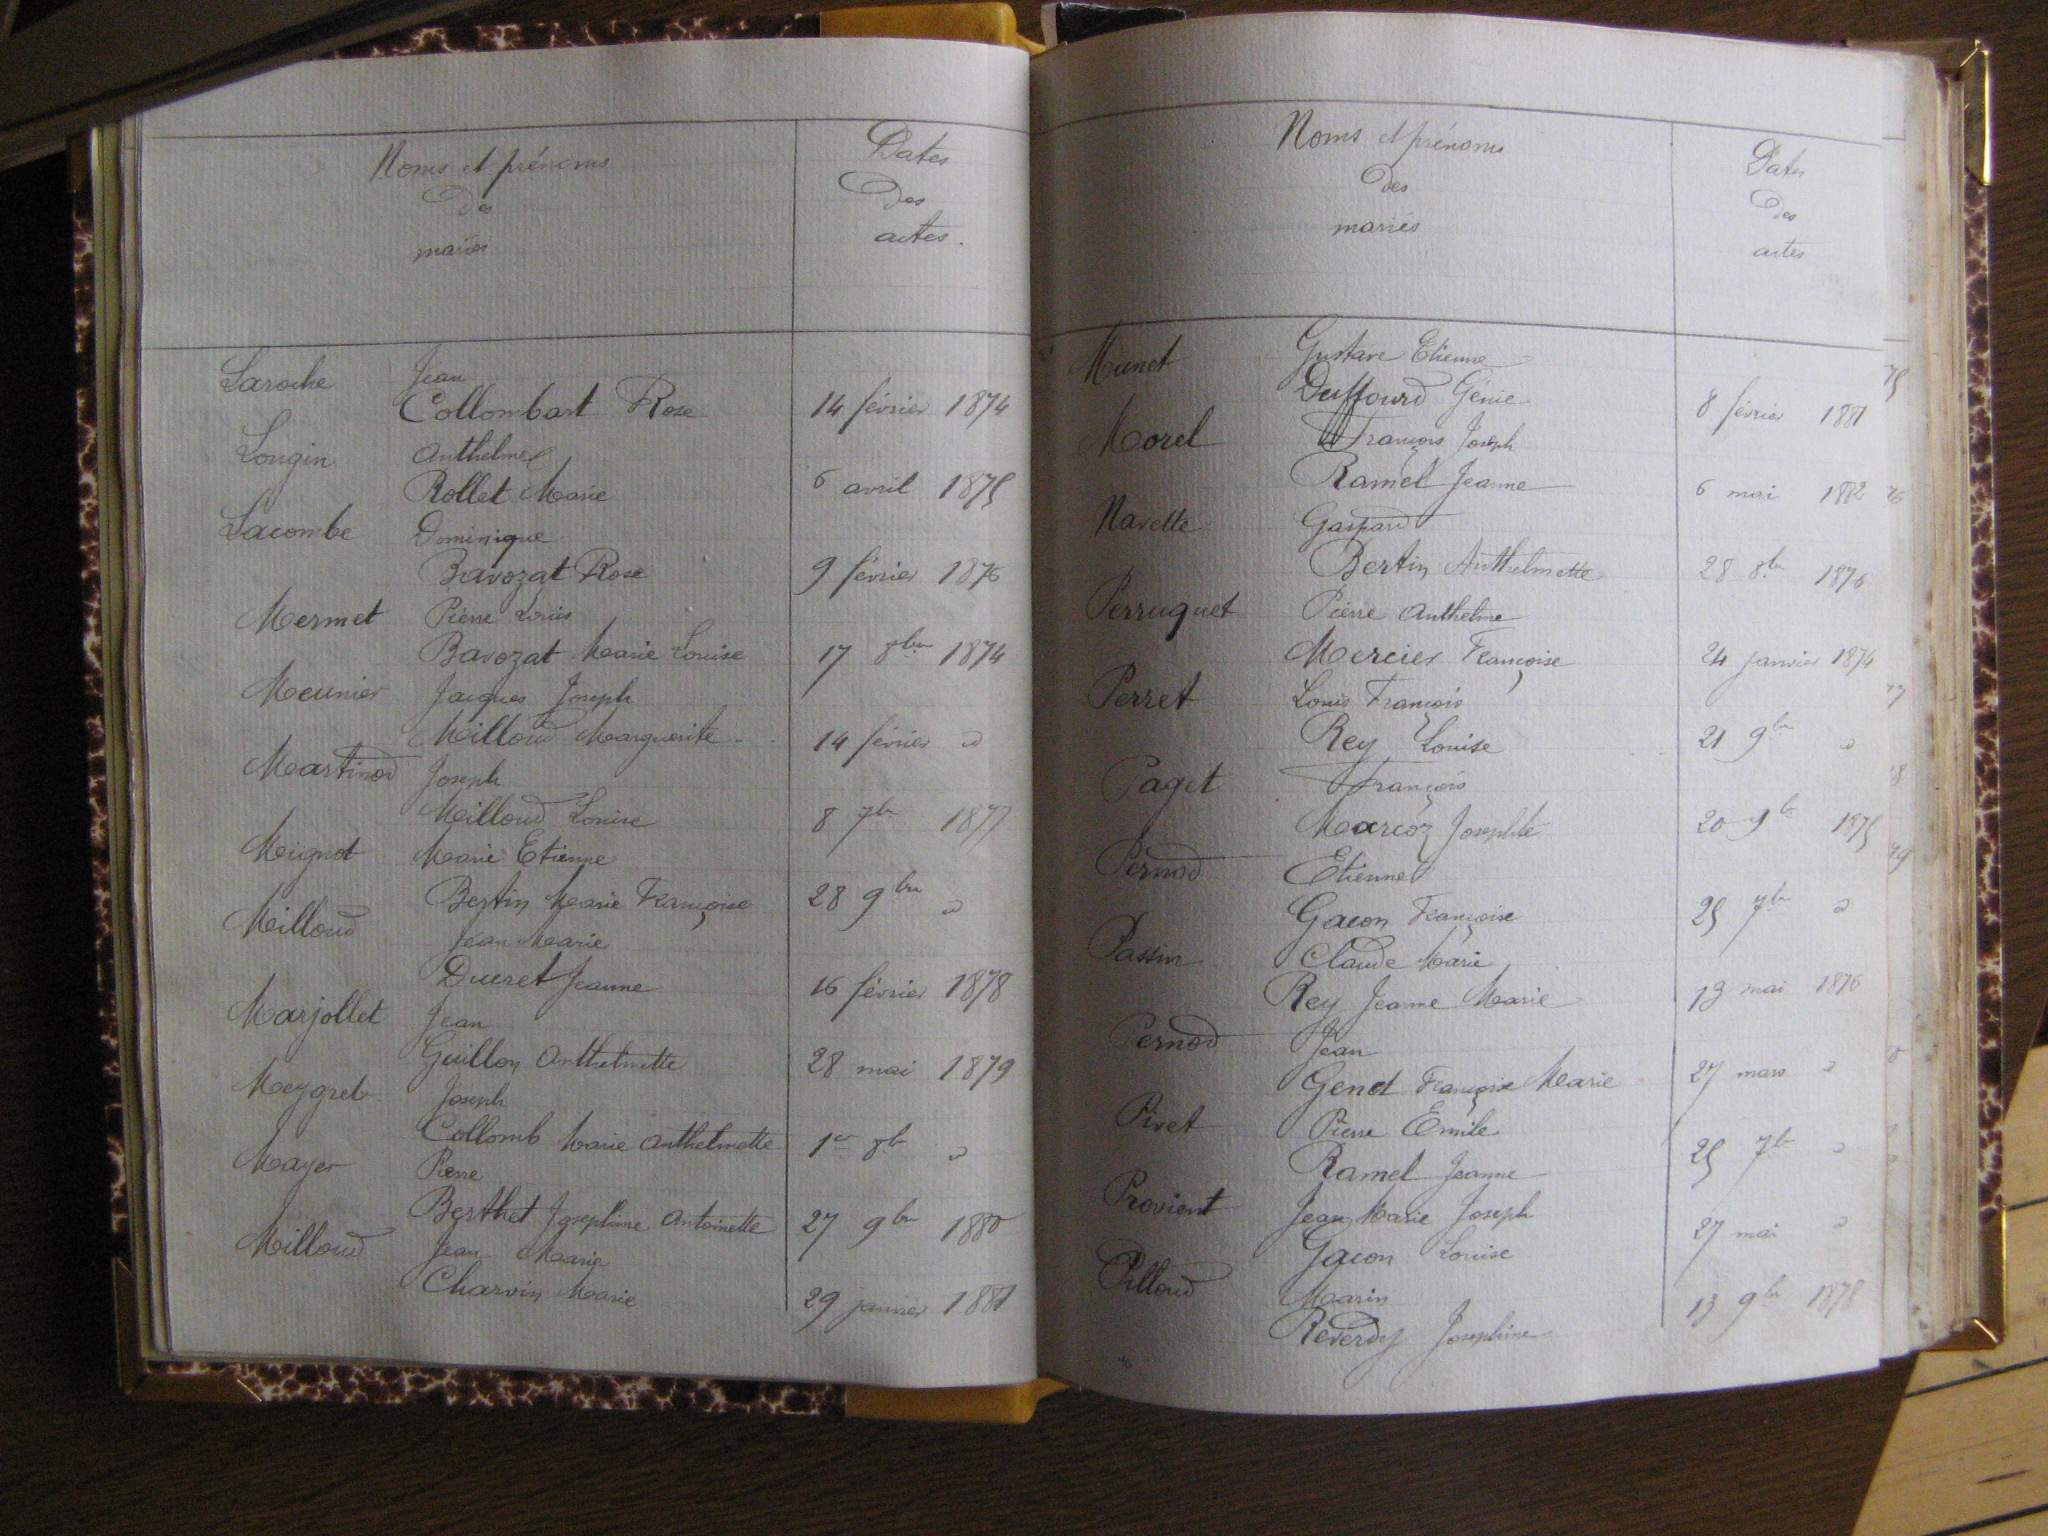 Noms et prénoms
des
mariés
Dates
des
actes.
Laroche Jean
Collombart Rose 14 février 1874
Longin Anthelme
Rollet Marie 6 avril 1875
Lacombe Dominique
Bavozat Rose 9 février 1876
Mermet Pierre Louis
Bavozat Marie Louise 17 8bre 1874
Meunier Jacques Joseph
Milloud Marguerite 14 février d
Martinod Joseph
Milloud Louise 8 7bre 1877
Mignot Marie Etienne
Bertin Marie Françoise 28 9bre d
Milloud Jean Marie
Ducret Jeanne 16 février 1878
Marjollet Jean
Guillon Anthelmette 28 mai 1879
Meygret Joseph
Collomb Marie Anthelmette 1er 8bre d
Mayer Pierre
Berthet Josephine Antoinette 27 9bre 1880
Milloud Jean Marie
Charvin Marie 29 janvier 1881
Noms et prénoms
des
mariés
Dates
des
actes
Munet Gustave Etienne
Duffourd Génie 8 février 1881
Morel François Joseph
Ramel Jeanne 6 mai 1882
Navette Gaspard
Bertin Anthelmette 28 8bre 1876
Perruquet Pierre Anthelme
Mercier Françoise 24 janvier 1874
Perret Louis François
Rey Louise 21 9bre d
Paget François
Marcoz Josephte 20 9bre 1875
Pernod Etienne
Gacon Françoise 25 7bre d
Passin Claude Marie
Rey Jeanne Marie 13 mai 1876
Pernod Jean
Genot Françoise Marie 27 mars d
Pivet Pierre Emile
Ramel Jeanne 25 7bre d
Provient Jean Marie Joseph
Gacon Louise 27 mai d
Pilloud Marin
Reverdy Josephine 13 9bre 1878